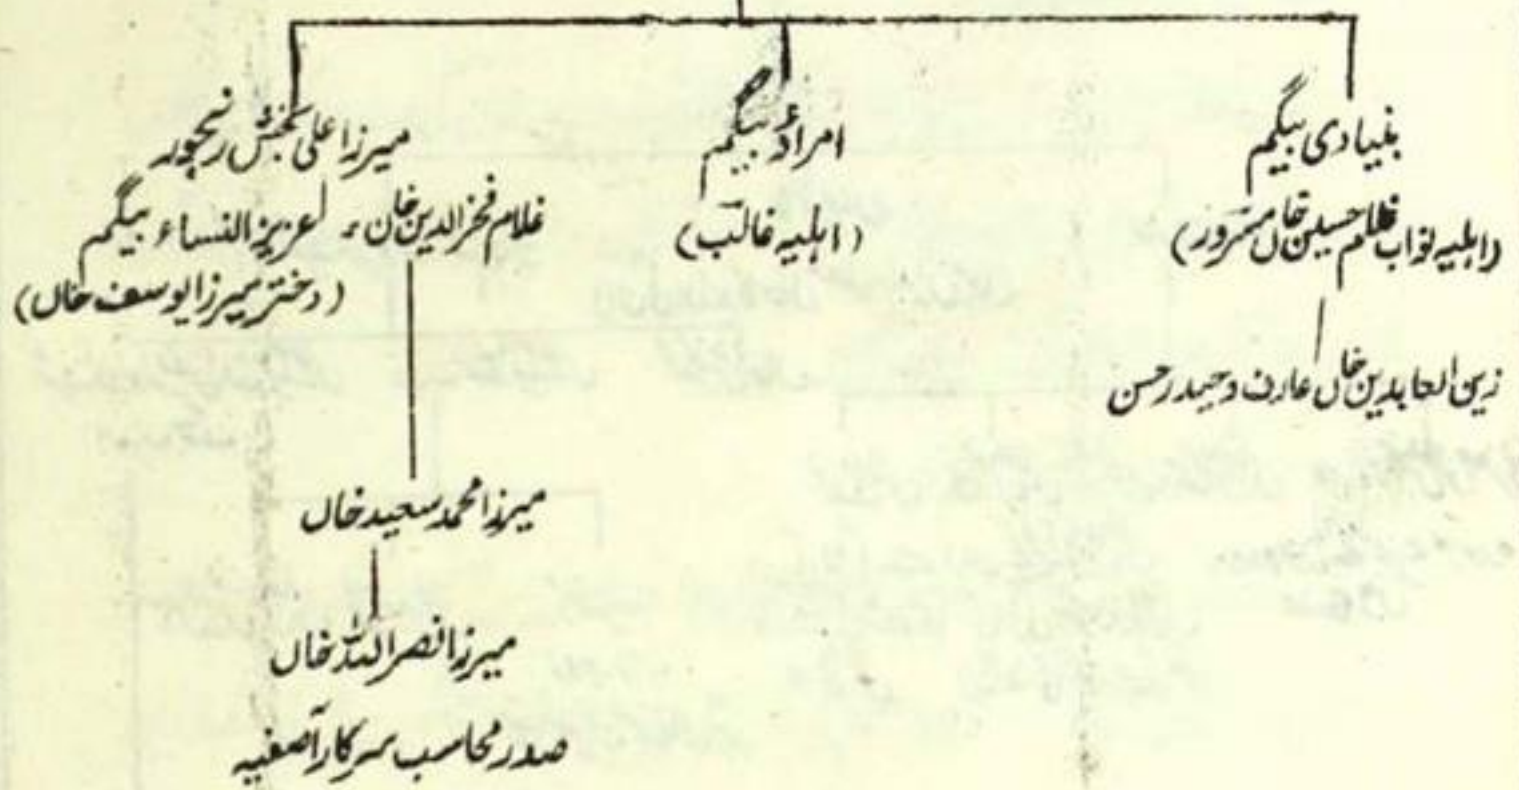 بنیادی بیگم
(اہلیہ نواب غلام حسین خاں مسرور)
زین العابدین خاں عارف و حیدر حسن
امراؤ بیگم
(اہلیہ غالب)
میرزا علی بخش رنجور
غلام فخرالدین خان، عزیز النساء بیگم
(دختر میرزا یوسف خاں)
میرزا محمد سعید خاں
میرزا نصر اللہ خاں
صدر محاسب سرکار آصفیہ